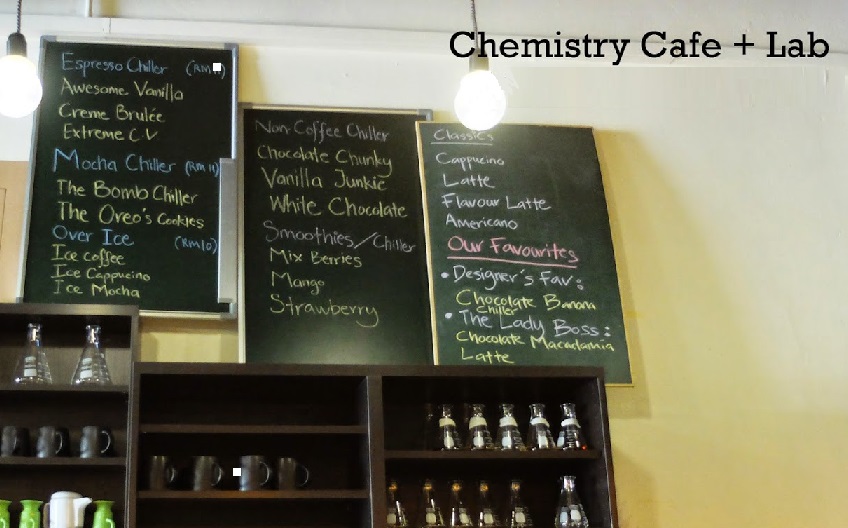 Chemistry Cafe + Lab
Espresso Chiller
Awesome Vanilla
Creme Brulée
Extreme C.V
Mocha Chiller (RM 11)
The Bomb Chiller
The Oreo's Cookies
Over Ice (RM10)
Ice Coffee
Ice Cappucino
Ice Mocha
Non-Coffee Chiller
Chocolate Chunky
Vanilla Junkie
White Chocolate
Smoothies/Chiller
Mix Berries
Mango
Strawberry
Classics
Cappucino
Latte
Flavour Latte
Americano
Our Favourites
• Designer's Fav:
Chocolate Banana
Chiller
• The Lady Boss:
Chocolate Macadamia
Latte